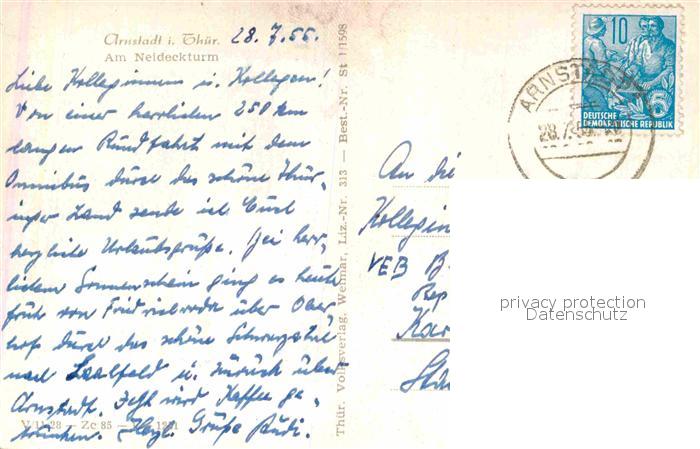 Arnstadt i. Thür. 28.7.55.
Am Neideckturm
Liebe Kolleginnen u. Kollegen!
Von einer herrlichen 250 km
langen Rundfahrt mit dem
Omnibus durch das schöne Thür-
inger Land sende ich Euch
herzliche Urlaubsgrüße. Bei herr-
lichem Sonnenschein ging es heute
früh von Friedrichroda über Ober-
hof durch das schöne Schwarzatal
nach Saalfeld u. zurück über
Arnstadt. Jetzt wird Kaffee ge-
trunken. Herzl. Grüße Rudi.
V/11/28 — Zc 85
Thür. Volksverlag, Weimar, Liz.-Nr. 313 — Best.-Nr. St 1/1598
10
DEUTSCHE
DEMOKRATISCHE REPUBLIK
ARNSTADT
An die
Kollegin
VEB B
Kar
Sta
privacy protection
Datenschutz